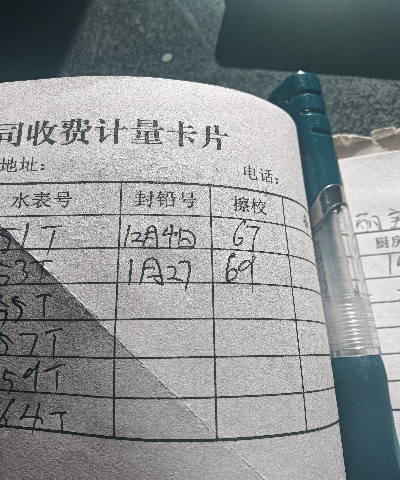 司收费计量卡片
地址： 电话：
水表号 封铅号 擦校
51T 12月4日 67
53T 1月27 69
55T
57T
59T
64T
厨房